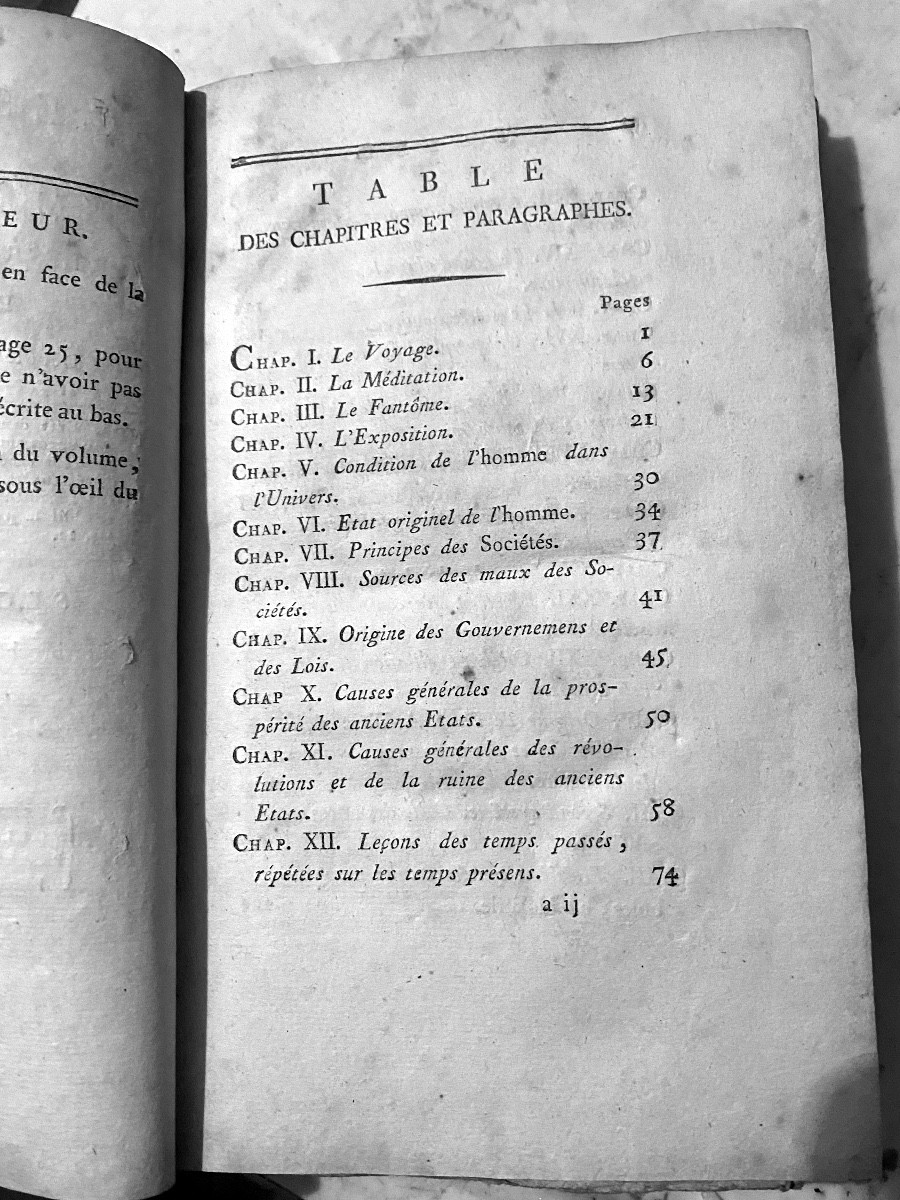 EUR.
en face de la
age 25, pour
e n'avoir pas
écrite au bas.
du volume,
sous l'œil du
TABLE
DES CHAPITRES ET PARAGRAPHES.
Pages
CHAP. I. Le Voyage. 1
CHAP. II. La Méditation. 6
CHAP. III. Le Fantôme. 13
CHAP. IV. L'Exposition. 21
CHAP. V. Condition de l'homme dans
l'Univers. 30
CHAP. VI. Etat originel de l'homme. 34
CHAP. VII. Principes des Sociétés. 37
CHAP. VIII. Sources des maux des So-
ciétés. 41
CHAP. IX. Origine des Gouvernemens et
des Lois. 45
CHAP X. Causes générales de la pros-
périté des anciens Etats. 50
CHAP. XI. Causes générales des révo-
lutions et de la ruine des anciens
Etats. 58
CHAP. XII. Leçons des temps passés,
répétées sur les temps présens. 74
a ij